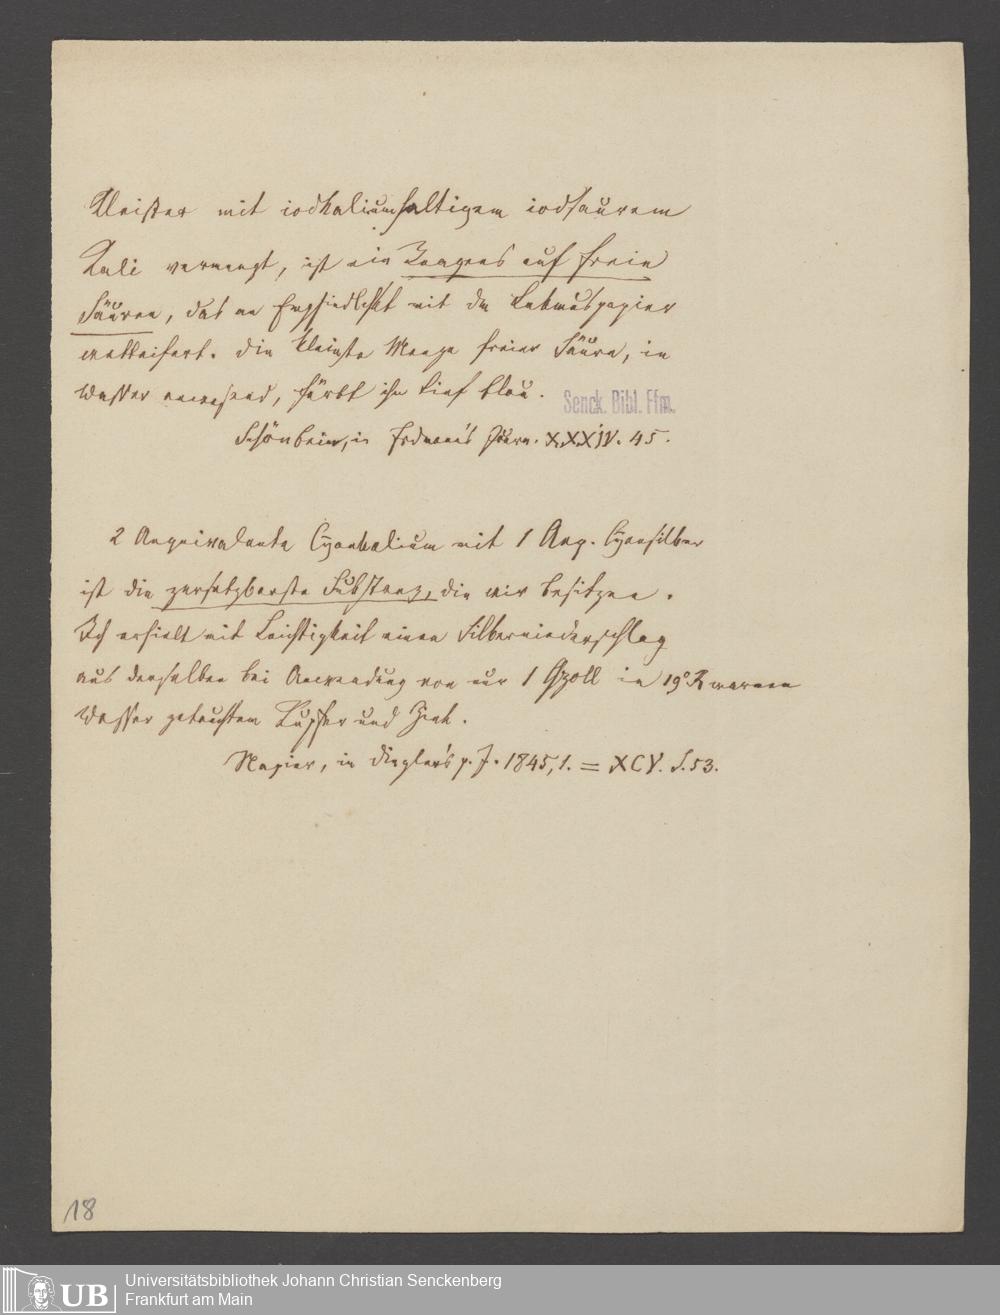 Kleister mit iodkaliumhaltigem iodsaurem
Kali vermengt, ist ein Reagens auf freie
Säuren, das an Empfindlichkt mit dem Lakmuspapier
wetteifert. Die kleinste Menge freier Säure, in
Wasser anwesend, färbt ihn tief blau.
Senck. Bibl. Ffm.
Schönbein, in Erdmann's Journ. XXXIV. 45.
2 Aequivalente Cyankalium mit 1 Aeq. Cyansilber
ist die zersetzbarste Substanz, die wir besitzen.
Ich erhielt mit Leichtigkeit einen Silberniederschlag
aus derselben bei Anwendung von nur 1 Qzoll in 19° R warmen
Wasser getauchtem Kupfer und Zink.
Napier, in Dingler's p. J. 1845, 1. = XCV. S. 53.
18
UB
Universitätsbibliothek Johann Christian Senckenberg
Frankfurt am Main